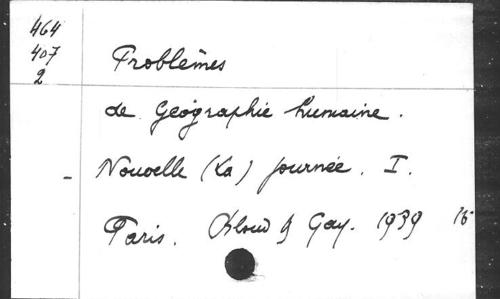 464
407
2
Problèmes
de Géographie humaine.
- Nouvelle (La) Journée. I.
Paris. Bloud & Gay. 1939 15